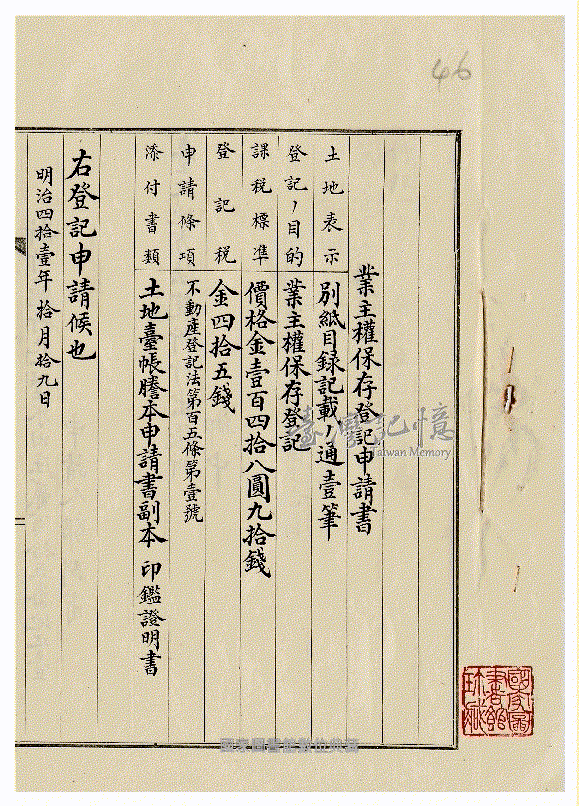 46
業主權保存登記申請書
土地表示 別紙目録記載ノ通壹筆
登記ノ目的 業主權保存登記
課税標準 價格金壹百四拾八圓九拾錢
登記税 金四拾五錢
申請條項 不動産登記法第百五條第壹號
添付書類 土地臺帳謄本申請書副本 印鑑證明書
右登記申請候也
明治四拾壹年拾月拾九日
臺灣記憶
Taiwan Memory
國家圖書館數位典藏
國家圖書館珍藏